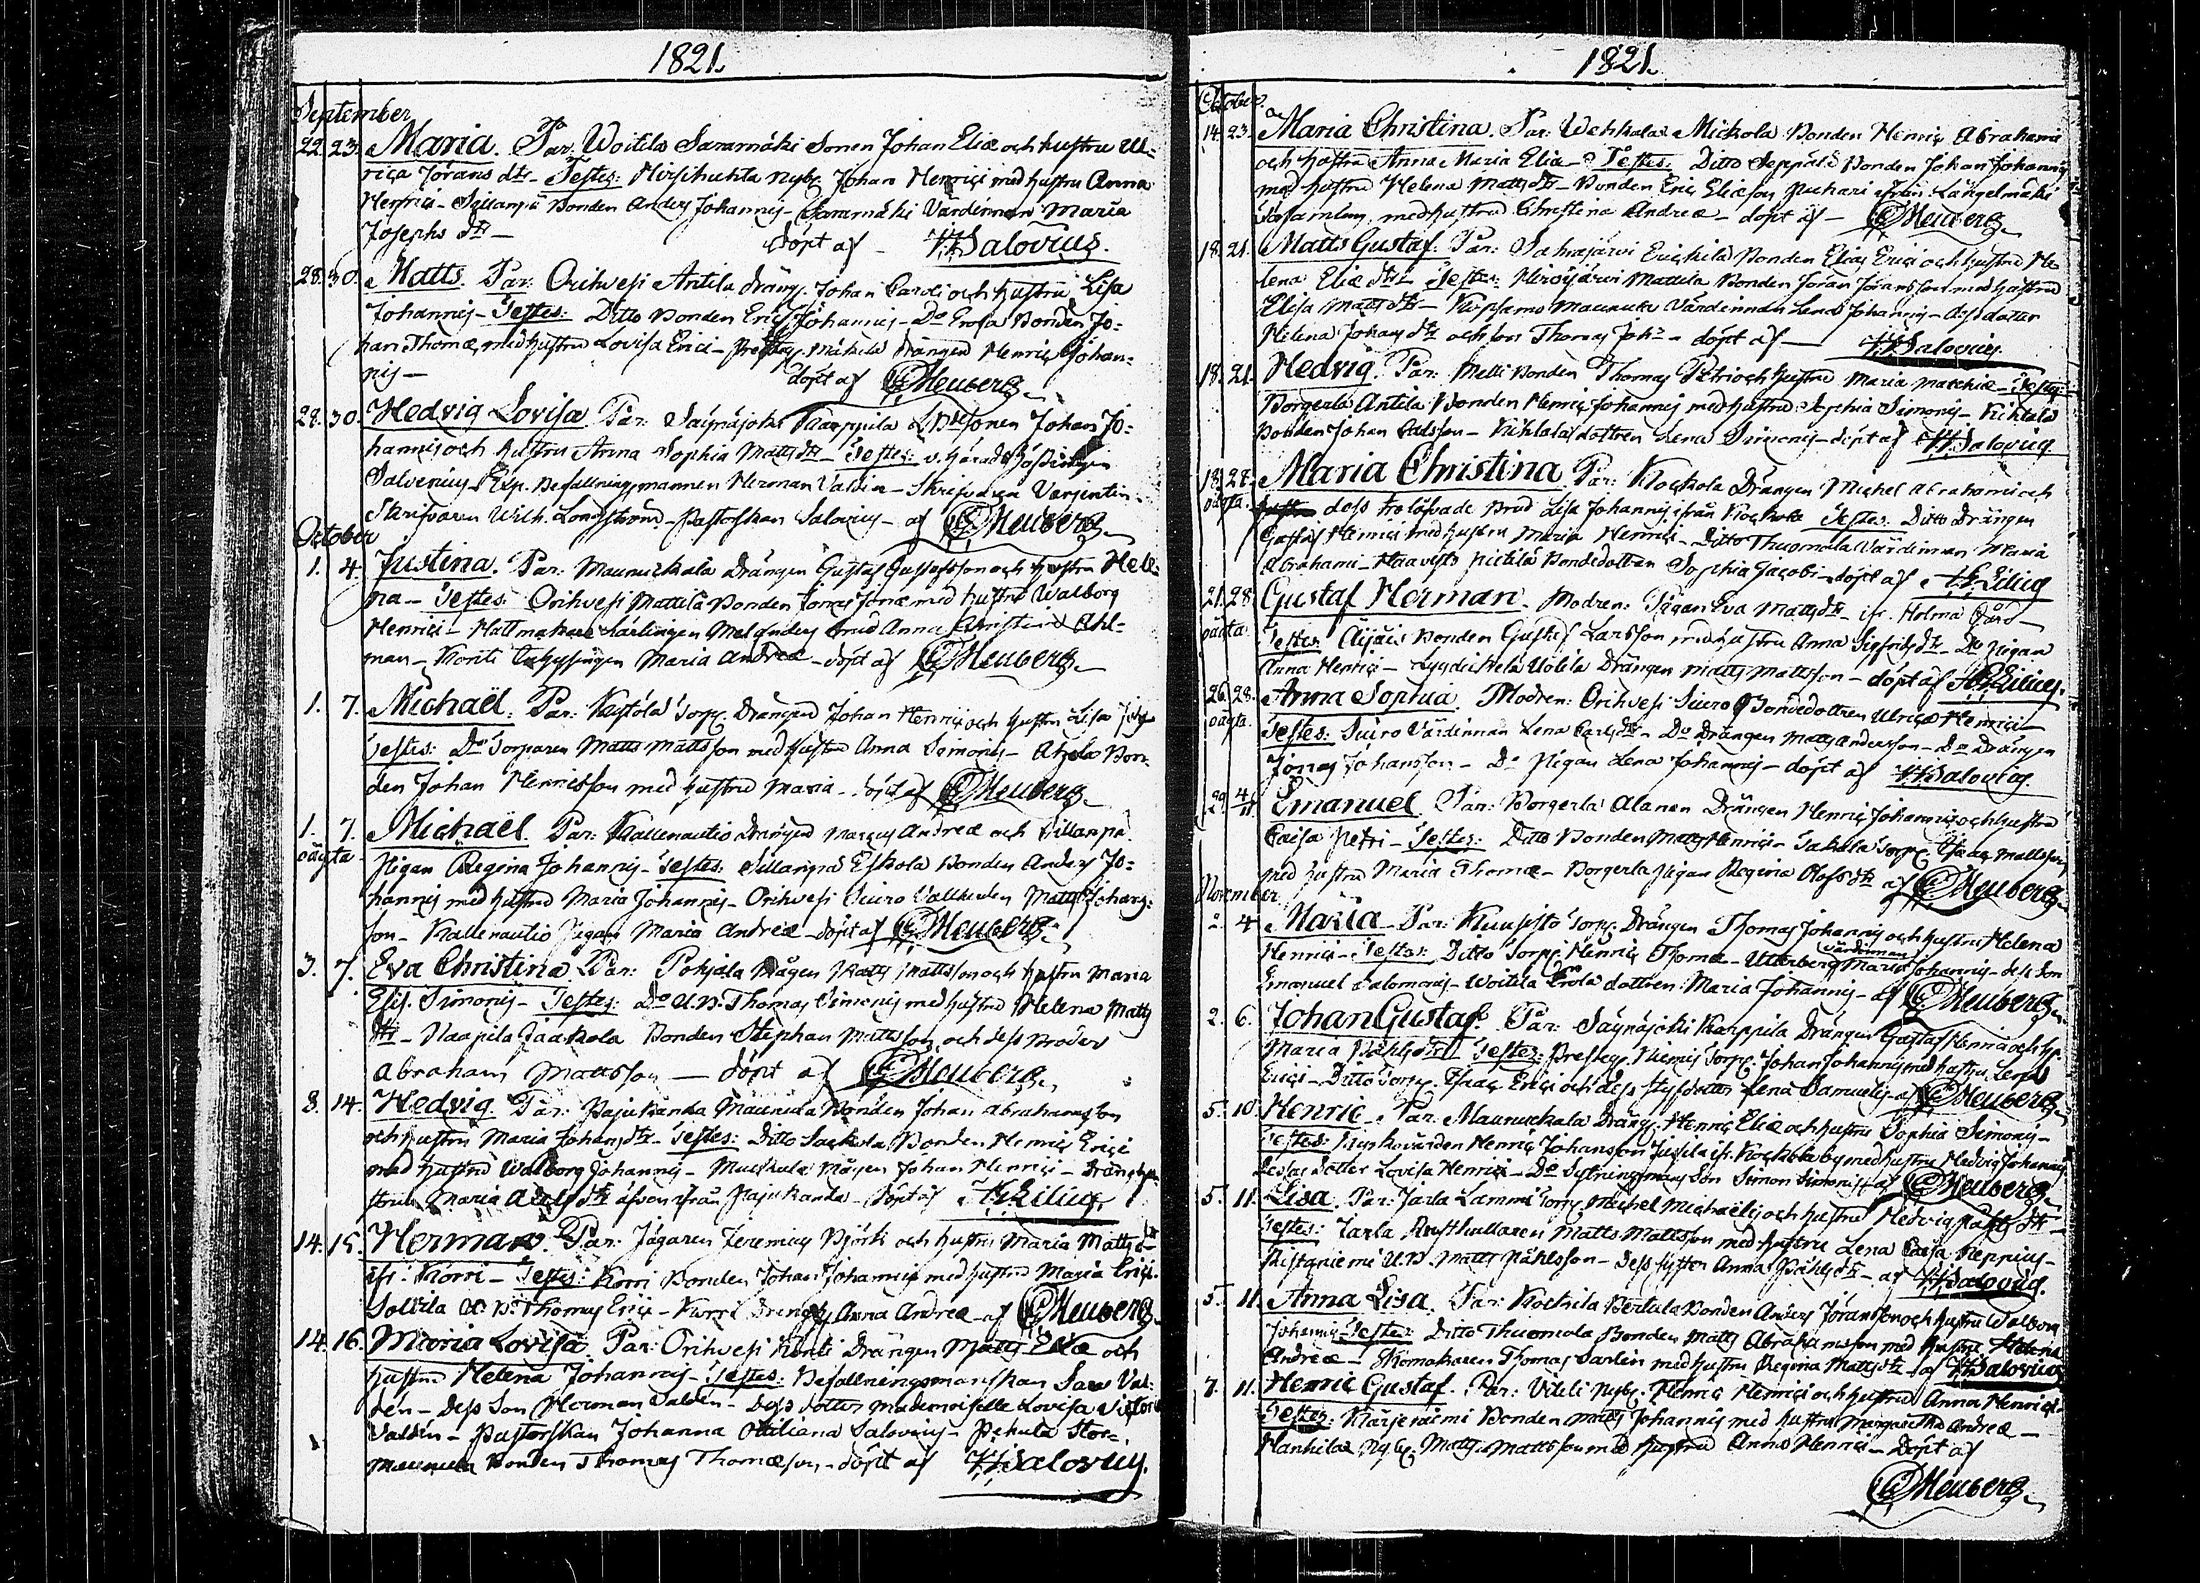 1821.
September
22. 23. Maria. Par: Woitila Saramäki Sonen Johan Eliæ och hustru Ul-
rica Jörans dtr - Testes: Hirsihuhta Nyb. Johan Henrici med hustru Anna
Henrici - Sillanpä Bonden Anders Johannis - Saramäki Värdinnan Maria
Josephs dtr - döpt af - Salovius.
28. 30. Matts. Par: Orihvesi Antila dräng. Johan Caroli och hustru Lisa
Johannis - Testes: Ditto Bonden Eric Johannis - Do Erola Bonden Jo-
han Thomæ med hustru Lovisa Erici - Mäkelä drängen Henric Johan-
nis - döpt af Heuberg
28. 30. Hedvig Lovisa Par: Säynäjoki Karppila Sonen Johan Jo-
hannis och hustru Anna Sophia Matts dtr - Testes: v. Häradshöfdingen
Salvenius - Exp. Befallningsmannen Herman Valdin - Skrifvaren
Skrifvaren Wilh. Longström - Pastorskan Salovius - af Heuberg
October
1. 4. Justina. Par: Maunuckala Drängen Gustaf Gustafsson och hustru Hele-
na - Testes: Orihvesi Mattila Bonden Jonas Jonæ med hustru Walborg
Henrici - Hattmakare Lärlingen brud Anna Christina Ahl-
man - Konti Maria Andreæ - döpt af Heuberg
1. 7. Michaël. Par: Torp. Drängen Johan Henrici och hustru Lisa
Testes: Do Torparen Matts Mattsson med hustru Anna Simonis - Ahola Bon-
den Johan Henricsson med hustru Maria - döpt af Heuberg
1. 7. Michaël Par: Kallenautio Drängen Marcus Andreæ och Sillanpä
oägta Pigan Regina Johannis - Testes: Sillanpä Eskola Bonden Anders Jo-
hannis med hustru Maria Johannis - Orihvesi Siuro Vallherden Matts Johans-
son - Kallenautio Pigan Maria Andreæ - döpt af Heuberg
3. 7. Eva Christina Par: Pohjala Mågen Matts Mattsson och hustru Maria
Elis. Simonis - Testes: Do U.B. Thomas Simonis med hustru Helena Matts
dtr - Haapila Jaakola Bonden Stephan Mattsson och dess Broder
Abraham Mattsson - döpt af Heuberg
8. 14. Hedvig. Par: Pajukanda Maunula Bonden Johan Abrahamsson
och hustru Maria Johans dtr - Testes: Ditto Bonden Henric Erici
med hustru Walborg Johannis - Mågen Johan Henrici - Dräng hu-
strun Maria dtr äfven ifrån Pajukanda - döpt af Lilius
14. 15. Herman. Par: Jägaren Jeremias Björk och hustru Maria Matts dtr
ifr: Korri - Testes: Korri Bonden Johan Johannis med hustru Maria Erici
Sollila U.B. Thomas Erici - Korri Anna Andreæ - af Heuberg
14. 16. Maria Lovisa. Par: Orihvesi Kónti Drängen Matts Eliæ och
hustru Helena Johannis - Testes: Befallningsmanskan Val-
dén - Dess Son Herman Valdén - Dess dotter Mademoiselle Lovisa
Valdén - Pastorskan Johanna Otiliana Salovius - Pehula Stor-
maunula Bonden Thomas Thomæson - döpt af Salovius.
1821.
October.
14. 23. Maria Christina. Par: Wehkalax Mickola Bonden Henric Abrahami
och hustru Anna Maria Eliæ - Testes: Ditto Seppälä Bonden Johan Johannis
med hustru Helena Matts dtr - Bonden Eric Eliæson Puhari ifrån Längelmäki
Församling med hustru Christina Andreæ - döpt af - Heuberg
18. 21. Matts Gustaf. Par: Sahrajärvi Erickilä Bonden Elias Erici och hustru He-
lena Eliæ dtr - Testes: Hirvijärvi Mattila Bonden Jöran Jöransson med hustru
Elisa Matts dtr - Maunula Värdinnan Lena Johannis - dess dotter
Helena Johans dtr och son Thomas Joh: - döpt af - Salovius.
18. 21. Hedvig. Par: Melli Bonden Thomas Petri och hustru Maria Matthiæ - Testes:
Borgerla Antila Bonden Henric Johannis med hustru Sophia Simonis -
Bonden Johan Carlsson - dottren Lena Simonis - döpt af Salovius
18. 28. Maria Christina Par: Kockola Drängen Michel Abrahami och
oägta. dess trolofvade brud Lisa Johannis ifrån Kockola Testes: Ditto Drängen
Gustaf Henrici med hustru Maria Henrici - Ditto Thuomola Värdinnan Maria
Abrahami - Haavisto Pietilä Bondedottren Sophia Jacobi - döpt af Lilius
21. 28. Gustaf Herman. Modren: Pigan Eva Matts dtr - ifr. Holma Gård -
oägta. Testes: Bonden Gustaf Larsson med hustru Anna Sigfrids dtr - Do Pigan
Anna Henrici - Uotila Drängen Matts Mattsson - döpt af Lilius.
26. 28. Anna Sophia. Modren: Orihvesi Siuro Bondedottren Ulrica Henrici -
oägta. Testes: Siuro Värdinnan Lena Carls dtr - Do Drängen Matts Andersson - Do Drängen
Jonas Johansson - Do Pigan Lena Johannis - döpt af Salovius.
29. 4/11 Emanuel Par: Borgerla Alanen Drängen Henric Johannis och hustru
Caisa Petri - Testes: Ditto Bonden Matts Henrici - Torp. Isaac Mattsson
med hustru Maria Thomæ - Borgerla Pigan Regina Olofs dtr af Heuberg
November
2. 4. Maria - Par: Kuusisto Torp. Drängen Thomas Johannis och hustru Helena
Henrici - Testes: Ditto Torp. Henric Thomæ - Utterberg Värdinnan Maria Johannis - dess Son
Emanuel Salomonis - Woitila Erola dottren Maria Johannis - af Heuberg
2. 6. Johan Gustaf. Par: Säynäjoki Karppila Drängen Gustaf Henrici och h.
Maria Påhls dtr Testes: Presteg. Niemis Torp. Johan Johannis med hustru Lena
Erici - Ditto Torp. Isaac Erici och dess styfdotter Lena Samuelis - af Heuberg
5. 10. Henric. Par: Maunuckala Dräng. Henric Eliæ och hustru Sophia Simonis -
Testes: Kyrkovärden Henric Johansson ifr. Kockbbaby med hustru Hedvig Johannis
dotter Lovisa Henrici - Do Sytningsmans Son Simon Simonis - af Heuberg
5. 11. Lisa. Par: Jarla Lammi Torp. Michel Michaelis och hustru Hedvig Påhls dtr -
Testes: Jarla Rusthållaren Matts Mattsson med hustru Lena Caisa Reppius -
Ristaniemi U.B. Matts Påhlsson - Dess syster Anna Påhls dtr - af Salovius.
5. 11. Anna Lisa. Par: Kockila Bertula Bonden Anders Jöransson och hustru Walborg
Johannis - Testes: Ditto Thuomola Bonden Matts Abrahamsson med hustru Helena
Andreæ - Skomakaren Thomas Sarlin med hustru Regina Matts dtr - af Salovius
7. 11. Henric Gustaf. Par: Viteli Nyb. Henric Henrici och hustru Anna Henrici -
Testes: Kärjeniemi Bonden Matts Johannis med hustru Margaretha Andreæ -
Hankila Nyb. Matts Mattsson med hustru Anna Henrici - Döpt af
Heuberg